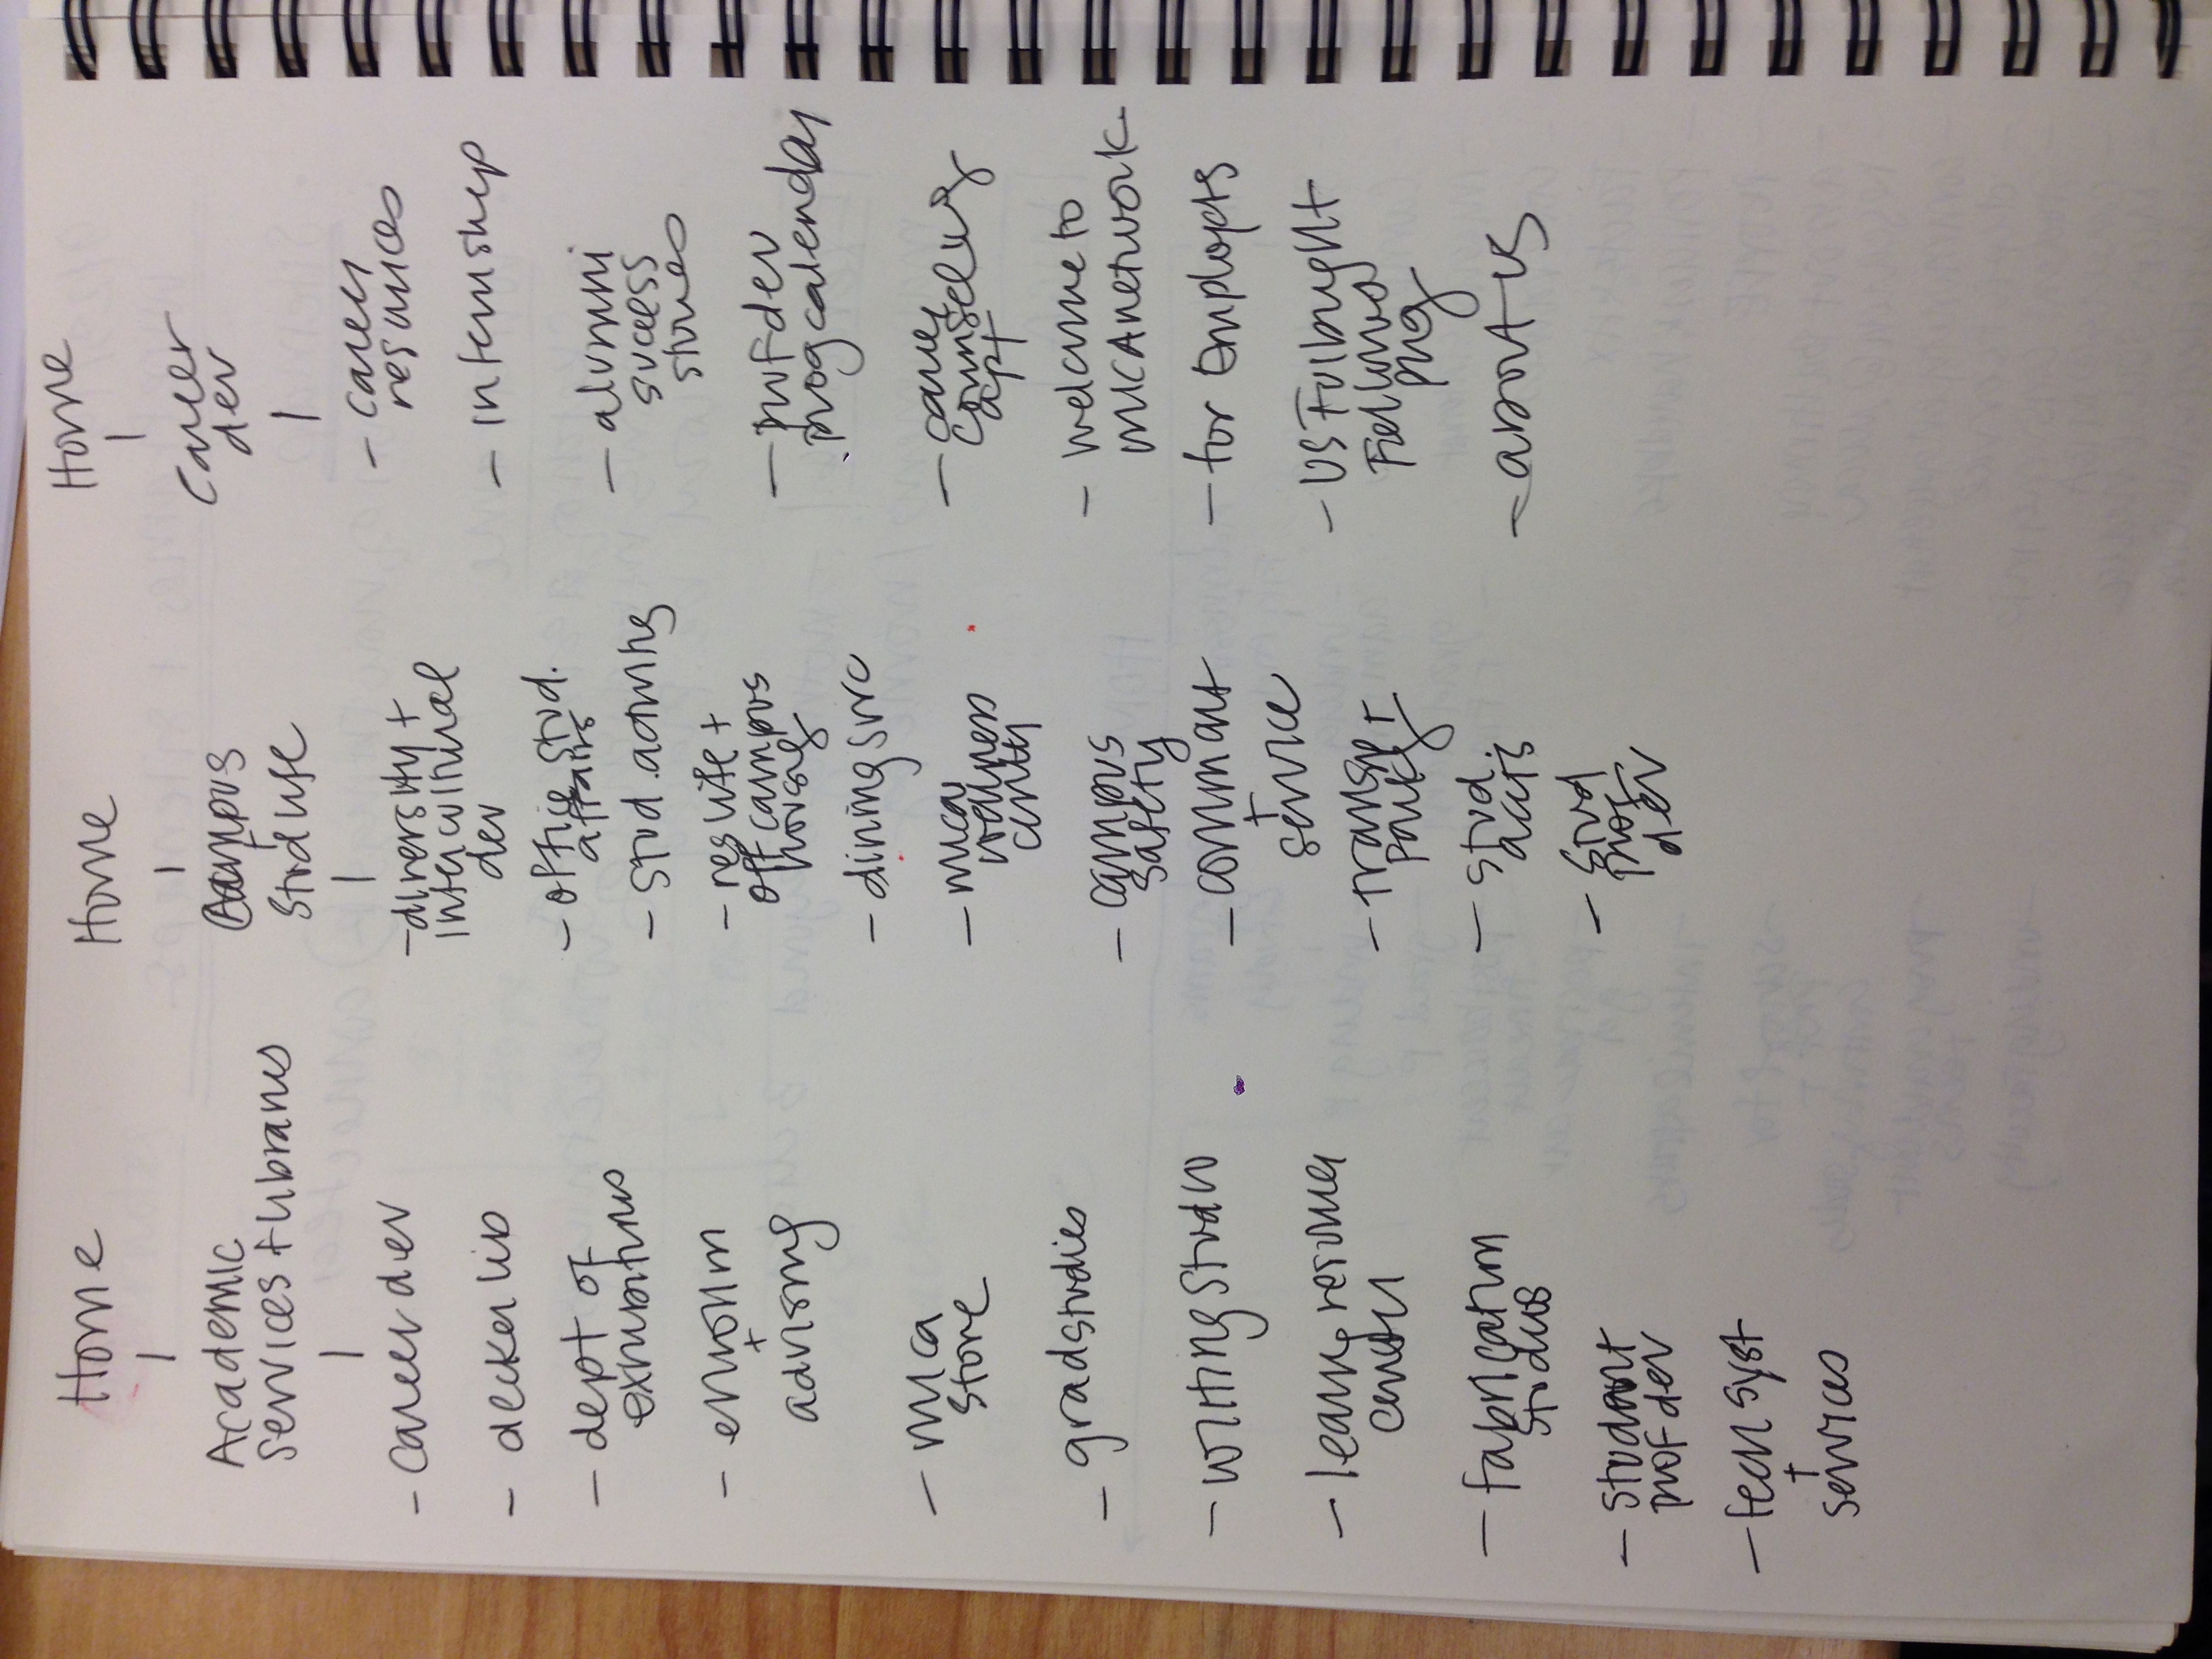 Home
|
Academic
Services + libraries
|
- career dev
- decker lib
- dept of
exhibitions
- enrollm
+
advising
- mica
store
- gradstudies
- writing studio
- learng resource
center
- fabrication
studios
- student
prof dev
- tech syst
+
services
Home
|
Campus
+
Stud life
|
- diversity +
intercultural
dev
- office stud.
affairs
- stud. activities
- res life +
off campus
housg
- dining svrc
- mica
wellness
center
- campus
safety
- comm art
+
service
- transp +
parkg
- stud.
accts
- stud
prof
dev
Home
|
career
dev
|
- career
resources
- internship
- alumni
sucess
stories
- prof dev
prog calendar
- career
counseling
apt
- welcome to
MICAnetwork
- for Employers
- US Fulbright
Fellows
prog
- about us